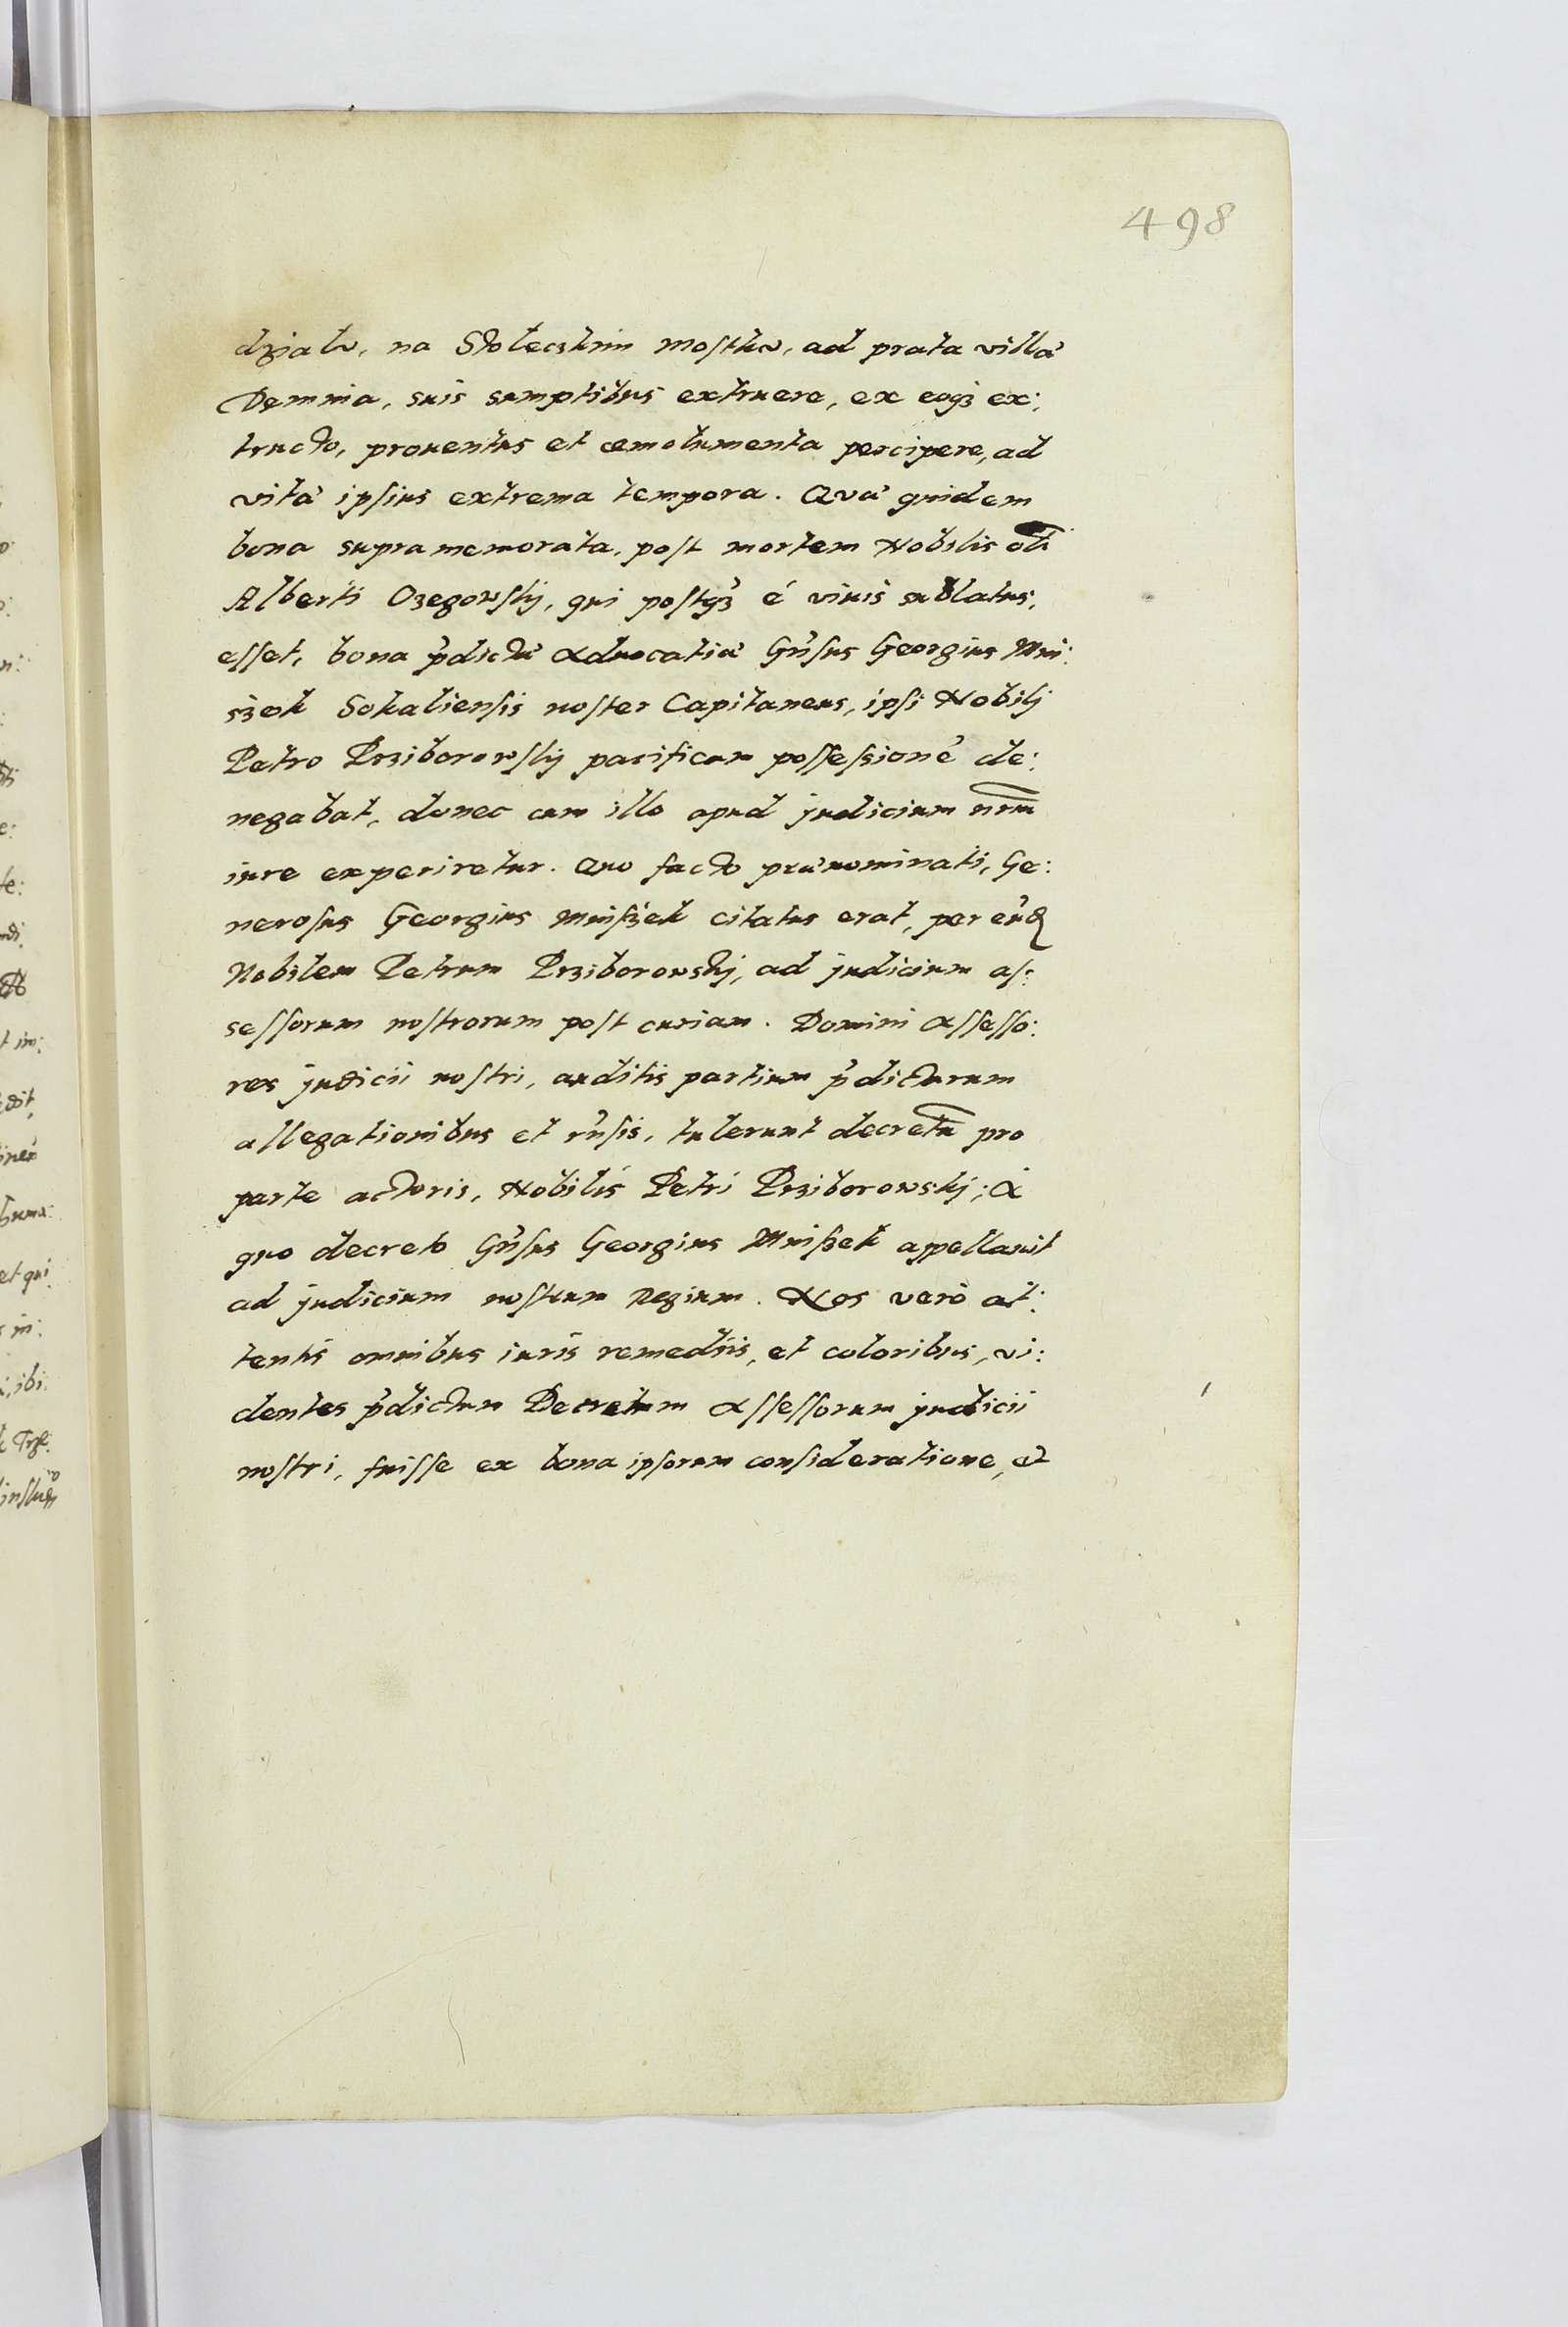 498
dzialu, na Stoleczkim mostku, ad prata villa'
Demnia, suis sumptibus extruere, ex eoq3 ex:
tructo, prouentus et œmolumenta percipere, ad
vita' ipsius extrema tempora. Qua' quidem
bona supra memorata, post mortem Nobilis oli
Alberti Ozegowskij, qui postq3 é viuis sublatus,
esset, bona p'dicta' aduocatia' Gn'sus Georgius Mni:
szek Sokaliensis noster Capitaneus, ipsi Nobilj
Petro Prziborowskij pacificam possessione' de:
negabat, donec cum illo apud judicium nrm
iure experiretur. Quo facto pra'nominati, Ge:
nerosus Georgius Mniszek citatus erat, per eu'd
Nobilem Petrum Prziborowskj, ad judicium as:
sessorum nostrorum post curiam. Domini assesso:
res judicii nostri, auditis partium p'dictarum
allegationibus et rn'sis, tulerunt decretu pro
parte actoris, Nobilis Petri Prziborowskj; à
quo decreto Gn'sus Georgius Mniszek appellauit
ad judicium nostrum Regium. Nos verò at:
tentis omnibus iuris remediis, et coloribus, vi:
dentes p'dictum Decretum assessorum judicii
nostri, fuisse ex bona ipsorum consideratione, et